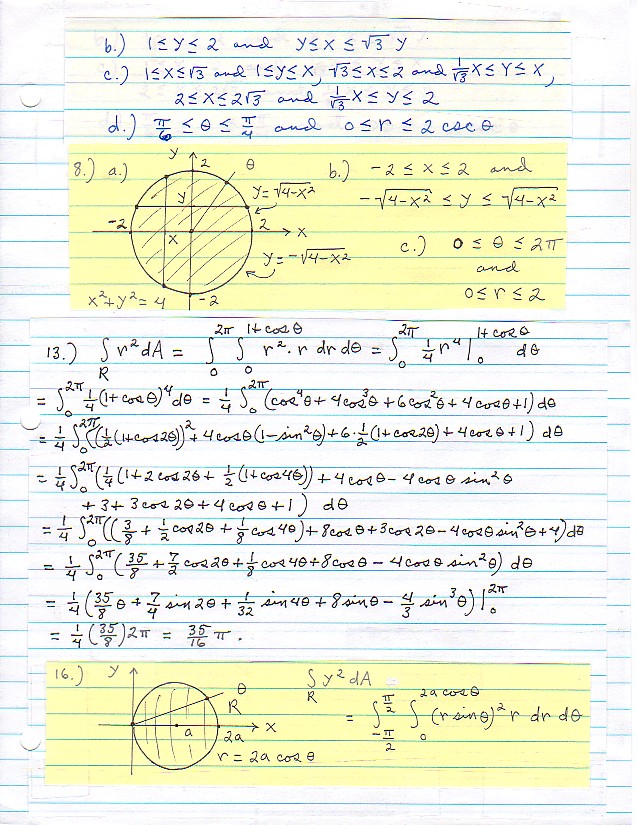 b.) 1≤y≤2 and y≤x≤√3 y
c.) 1≤x≤√3 and 1≤y≤x, √3≤x≤2 and 1/√3 x≤y≤x,
2≤x≤2√3 and 1/√3 x≤y≤2
d.) π/6 ≤ θ ≤ π/4 and 0≤r≤2 csc θ
8.) a.) y 2 θ y y=√(4-x²) -2 x 2 x y=-√(4-x²) x²+y²=4 -2
b.) -2≤x≤2 and
-√(4-x²) ≤ y ≤ √(4-x²)
c.) 0≤θ≤2π
and
0≤r≤2
13.) ∫_R r² dA = ∫_0^{2π} ∫_0^{1+cos θ} r²·r dr dθ = ∫_0^{2π} 1/4 r⁴ |_0^{1+cos θ} dθ
= ∫_0^{2π} 1/4 (1+cos θ)⁴ dθ = 1/4 ∫_0^{2π} (cos⁴θ + 4cos³θ + 6cos²θ + 4cos θ + 1) dθ
= 1/4 ∫_0^{2π} ((1/2 (1+cos2θ))² + 4cos θ(1-sin²θ) + 6·1/2 (1+cos2θ) + 4cos θ + 1) dθ
= 1/4 ∫_0^{2π} (1/4 (1+2cos2θ + 1/2 (1+cos4θ)) + 4cos θ - 4cos θ sin²θ
+3+3cos2θ+4cos θ+1) dθ
= 1/4 ∫_0^{2π} ((3/8 + 1/2 cos2θ + 1/8 cos4θ) + 8cos θ + 3cos2θ - 4cos θ sin²θ + 4) dθ
= 1/4 ∫_0^{2π} (35/8 + 7/2 cos2θ + 1/8 cos4θ + 8cos θ - 4cos θ sin²θ) dθ
= 1/4 (35/8 θ + 7/4 sin2θ + 1/32 sin4θ + 8sin θ - 4/3 sin³θ) |_0^{2π}
= 1/4 (35/8) 2π = 35/16 π.
16.) y θ R a 2a x r = 2a cos θ
∫_R y² dA
= ∫_{-π/2}^{π/2} ∫_0^{2a cos θ} (r sin θ)² r dr dθ